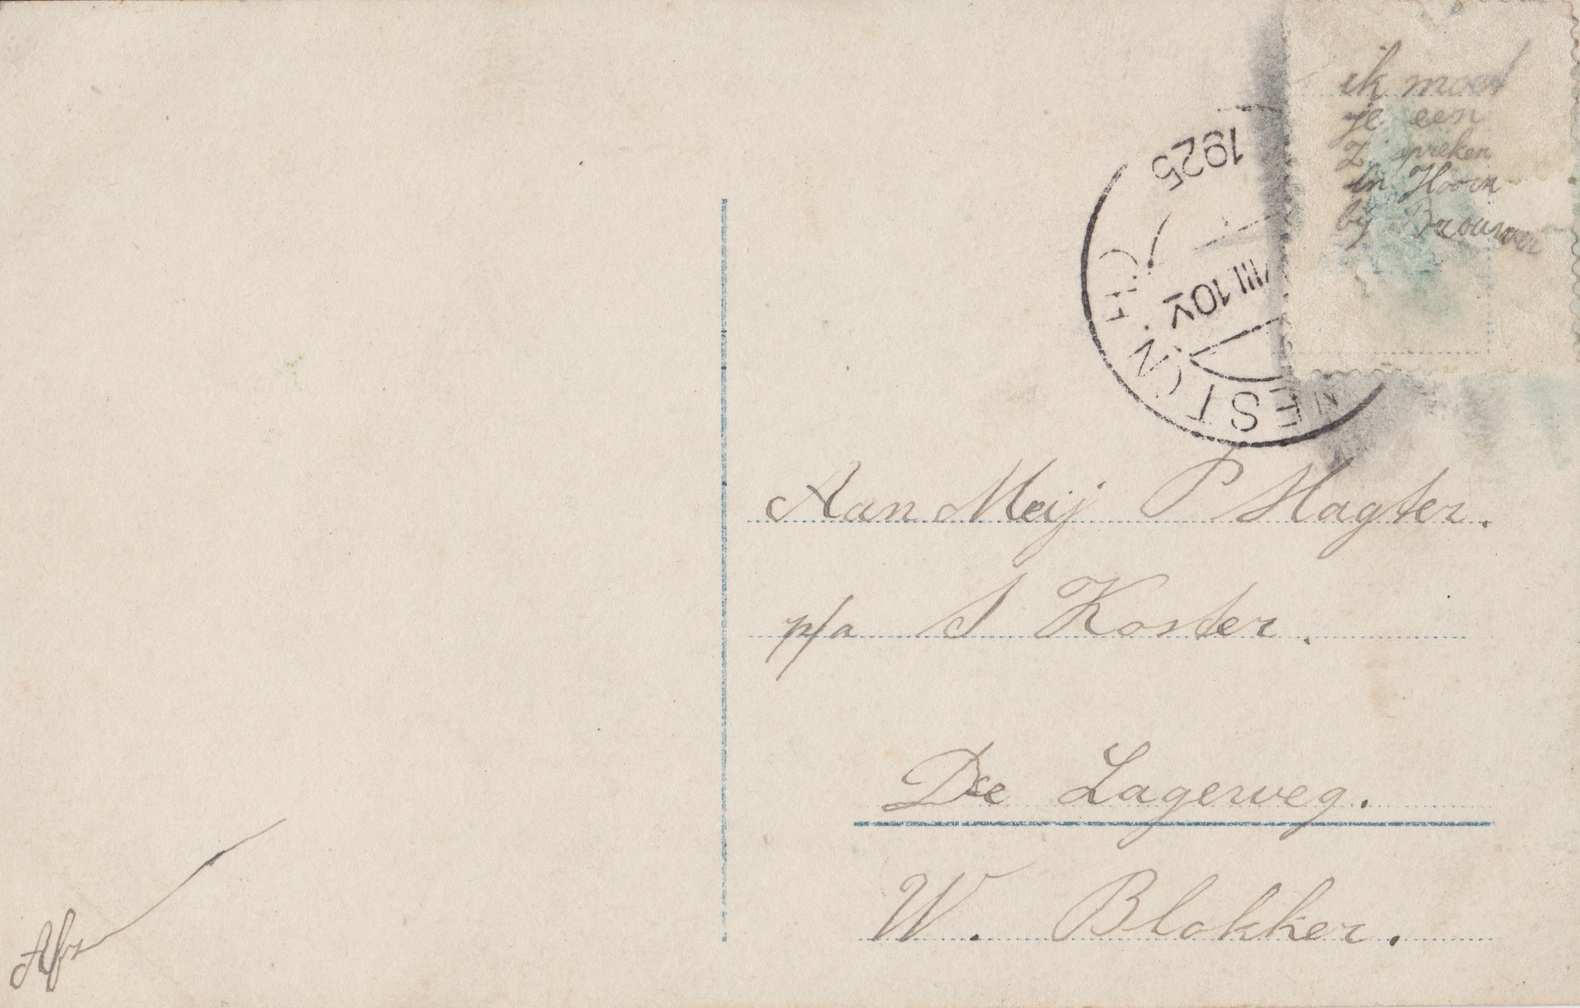 ik moet
je een
Z spreken
in Hoorn
bij Brouwer
1925
VIII 10V
NESTON CH
Aan Meij P Hagter.
p/a S Koster.
De Lagerweg.
W. Blokker.
Afz